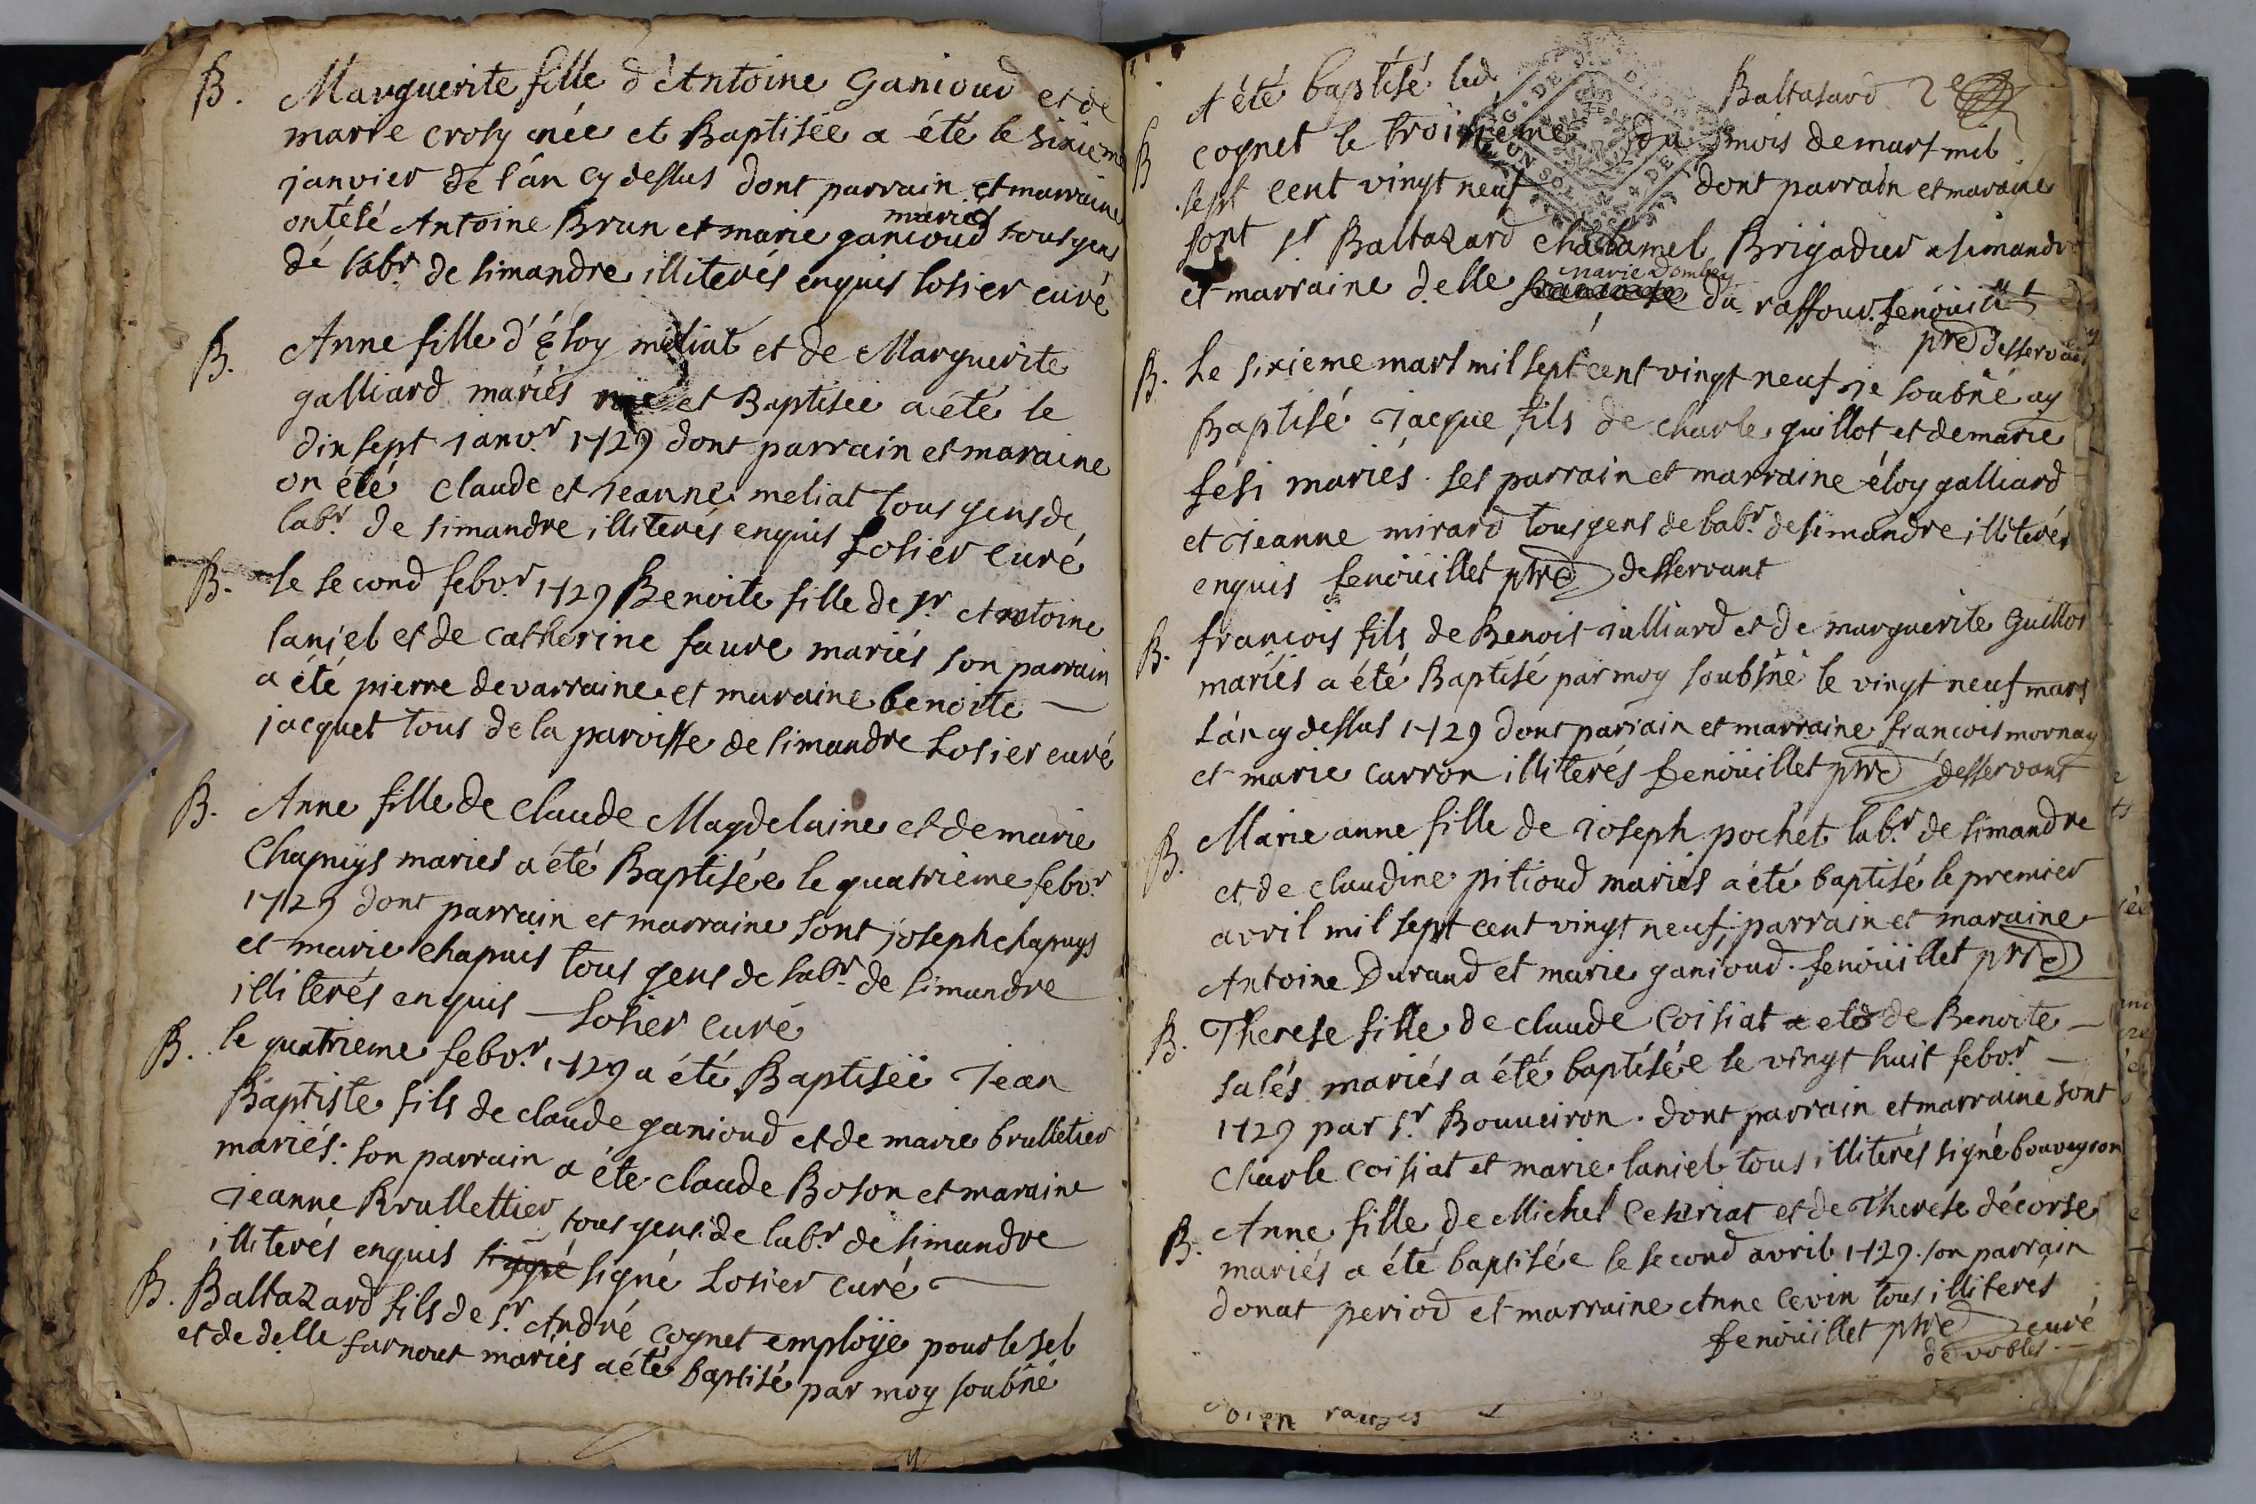 B. Marguerite fille d'Antoine ganioud et de
marie crosy née et Baptisée a été le sixieme
janvier de l'an cy dessus dont parrain et marraine
ont été Antoine Brun et marie ganioud mariés tous gens
de labr. de simandre illiterés enquis Losier curé
B. Anne fille d'éloy meliat et de Marguerite
galliard mariés née et Baptisée a été le
dix sept janvr. 1729 dont parrain et maraine
on été claude et jeanne meliat tous gens de
labr. de simandre illiterés enquis Losier curé
B. le second febvr. 1729 Benoite fille de sr. Antoine
laniel et de catherine faure mariés son parrain
a été pierre devarraine et maraine benoite
jacquet tous de la paroisse de simandre Losier curé
B. Anne fille de claude Magdelaine et de marie
Chapuys mariés a été Baptisée le quatrieme febvr.
1729 dont parrain et marraine sont joseph chapuys
et marie chapuis tous gens de labr. de simandre
illiterés enquis Losier curé
B. le quatrieme febvr. 1729 a été Baptiséé Jean
Baptiste fils de claude ganioud et de marie brulletier
mariés. son parrain a éte claude Boson et maraine
jeanne Brullettier tous gens de labr. de simandre
illiterés enquis signé signé Losier curé
B. Baltazard fils de sr. André cognet employé pour le sel
et de delle farnout mariés a été baptisé par moy soubné
A été baptisé led. Baltasard
B cognet le troisieme du mois de mars mil
sept cent vingt neuf dont parrain et maraine
sont sr Baltazard chalamel Brigadier a simandre
et marraine delle marie Dombey du raffour. fenöuillet
ptre desservant
B. Le sixieme mars mil sept cent vingt neuf je soubné ay
Baptisé jacque fils de charle guillot et de marie
fesi mariés. ses parrain et marraine éloy galliard
et jeanne mirard tous gens de labr. de simandre illiterés
enquis fenöuillet ptre desservant
B. francois fils de Benoit julliard et de marguerite Guillot
mariés a été Baptisé par moy soubsné le vingt neuf mars
l'an cy dessus 1729 dont parrain et marraine francois mornay
et marie carron illiterés fenöuillet ptre desservant
B. Marie anne fille de joseph pochet labr. de simandre
et de claudine pitioud mariés a été baptisé le premier
avril mil sept cent vingt neuf, parrain et maraine
Antoine Durand et marie ganioud. fenöuillet ptre
B. Therese fille de claude Coisiat et de Benoite
salés mariés a été baptisée le vingt huit febvr.
1729 par sr. Bouveiron. dont parrain et marraine sont
Charle coisiat et marie laniel tous illiterés signé bouveyron
B. Anne fille de Michel Ceiziriat et de Therese décorse
mariés a été baptisée le second avril 1729. son parrain
donat period et marraine Anne Cevin tous illiterés
fenöuillet ptre curé
de vobles.